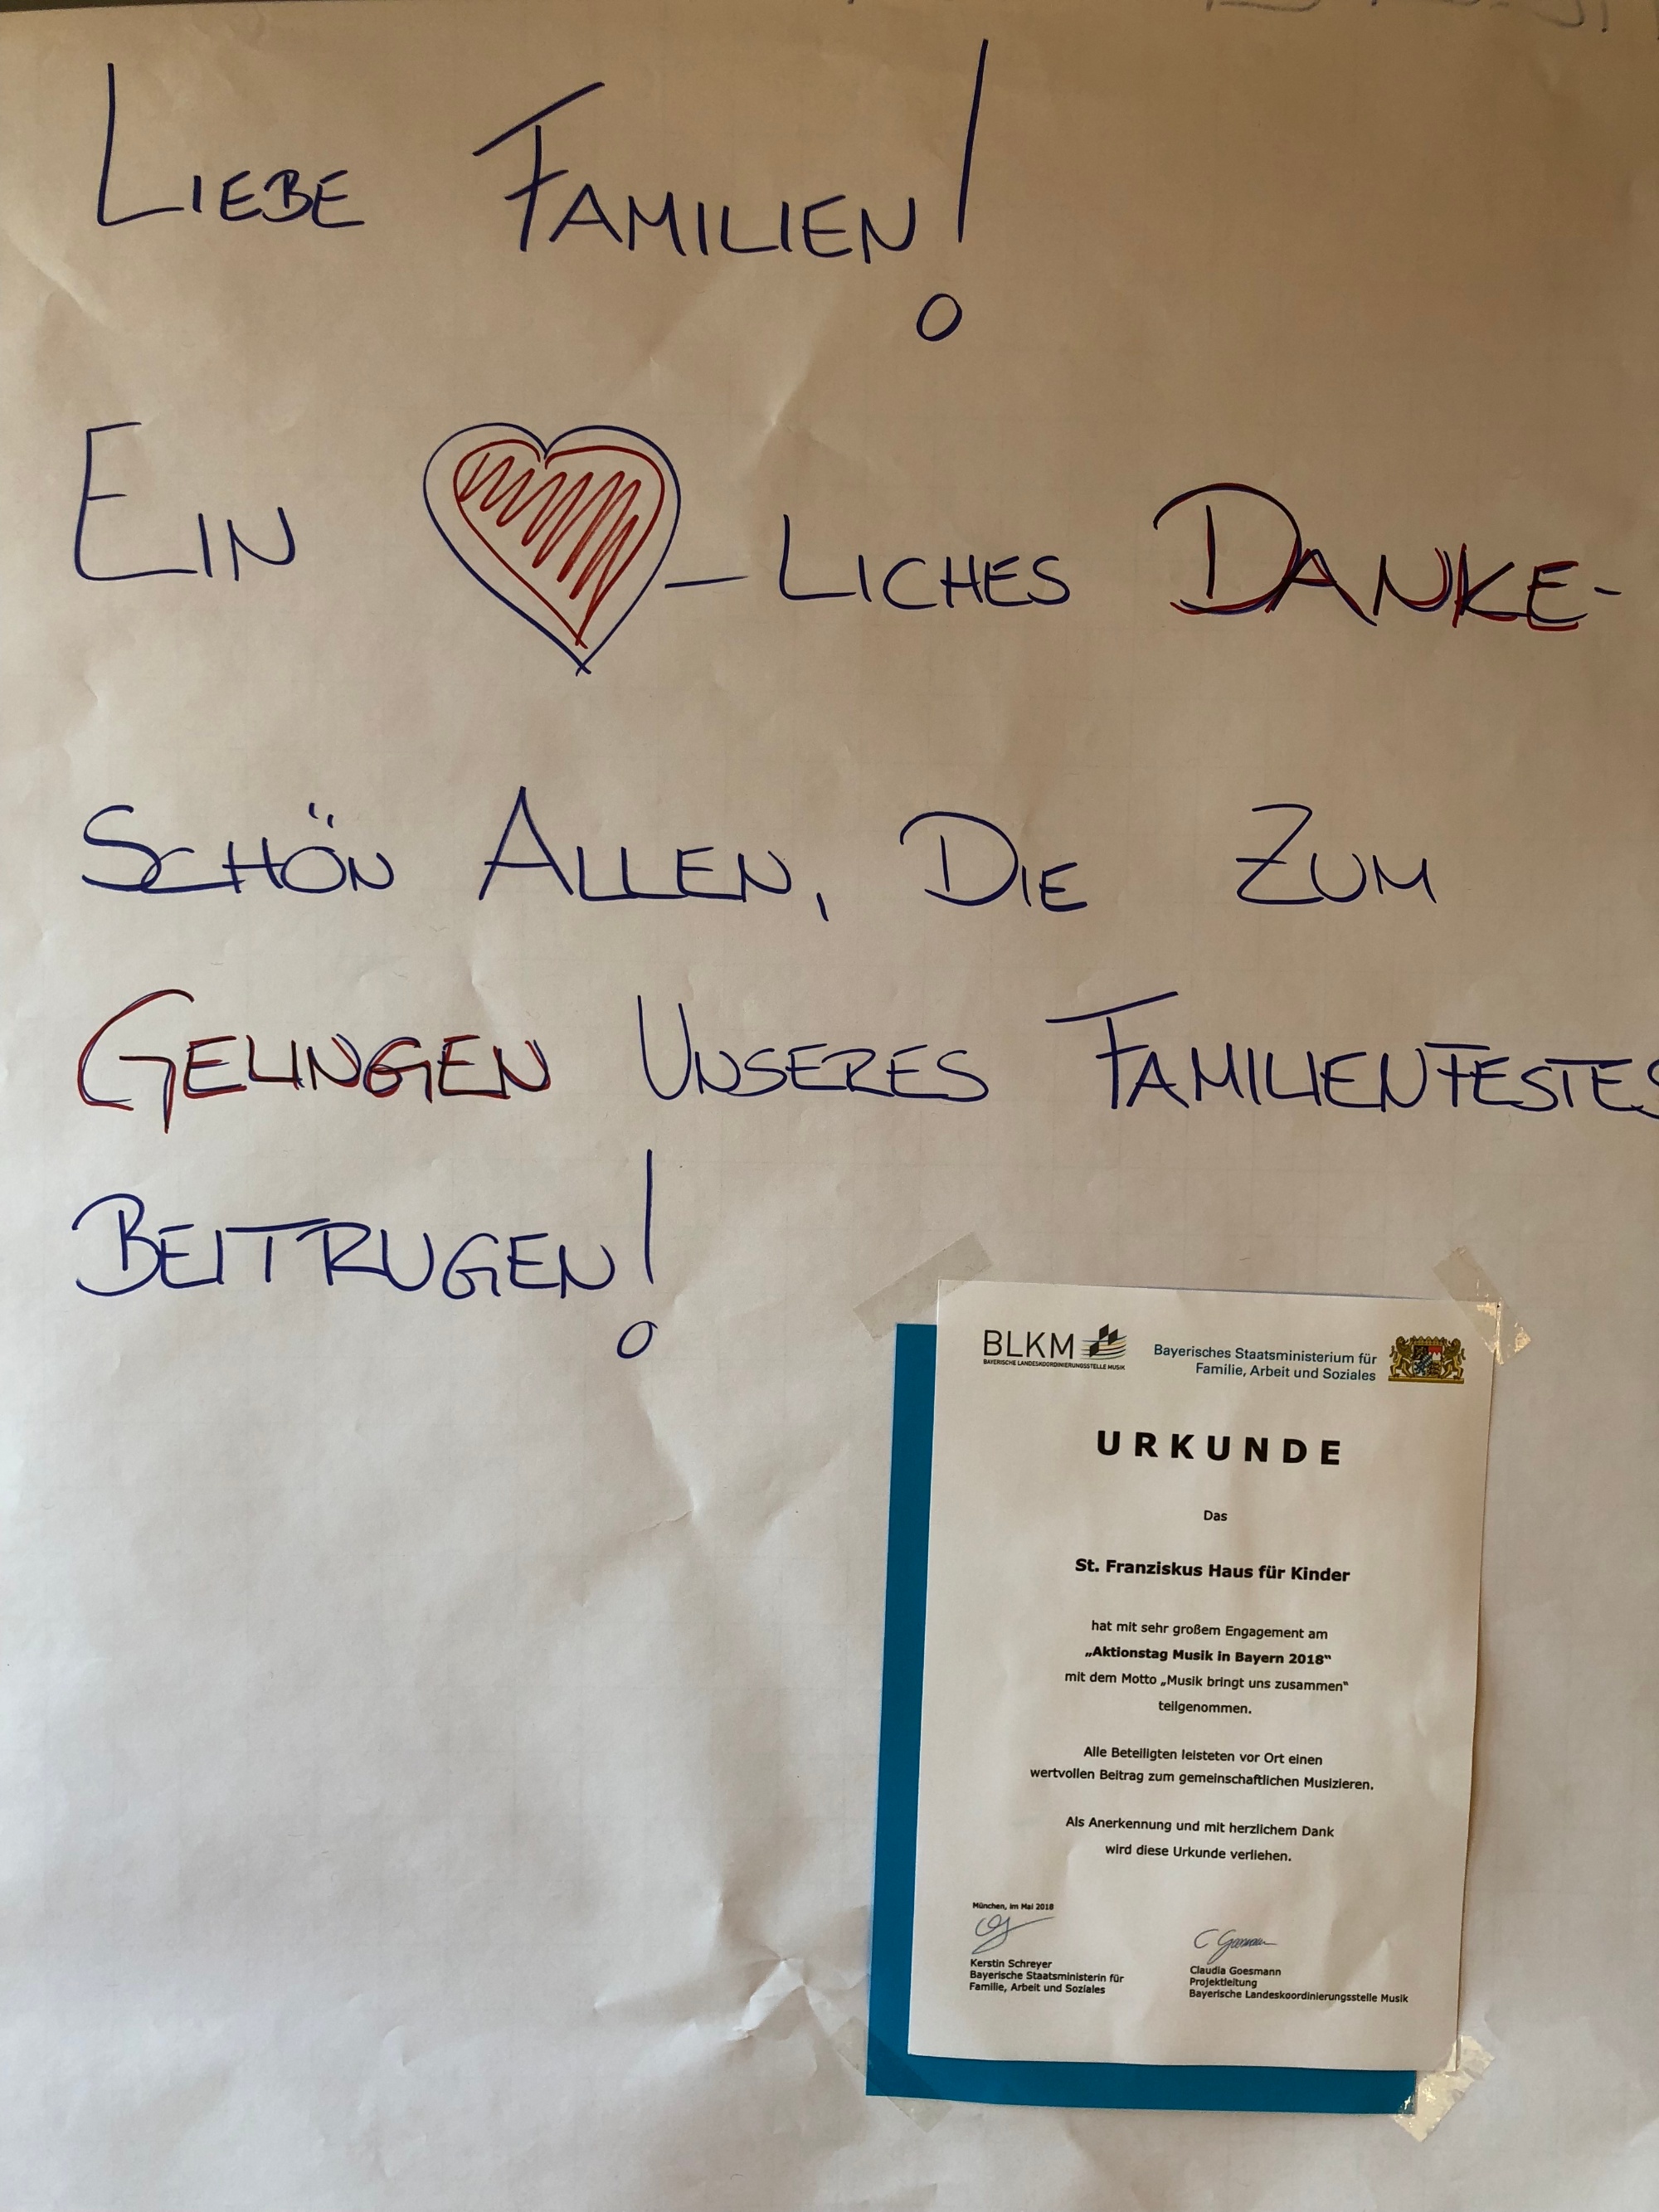 LIEBE FAMILIEN!
EIN ♥-LICHES DANKE-
SCHÖN ALLEN, DIE ZUM
GELINGEN UNSERES FAMILIENFESTES
BEITRUGEN!
BLKM
BAYERISCHE LANDESKOORDINIERUNGSSTELLE MUSIK
Bayerisches Staatsministerium für
Familie, Arbeit und Soziales
URKUNDE
Das
St. Franziskus Haus für Kinder
hat mit sehr großem Engagement am
„Aktionstag Musik in Bayern 2018“
mit dem Motto „Musik bringt uns zusammen“
teilgenommen.
Alle Beteiligten leisteten vor Ort einen
wertvollen Beitrag zum gemeinschaftlichen Musizieren.
Als Anerkennung und mit herzlichem Dank
wird diese Urkunde verliehen.
München, im Mai 2018
C Goesmann
Kerstin Schreyer
Bayerische Staatsministerin für
Familie, Arbeit und Soziales
Claudia Goesmann
Projektleitung
Bayerische Landeskoordinierungsstelle Musik